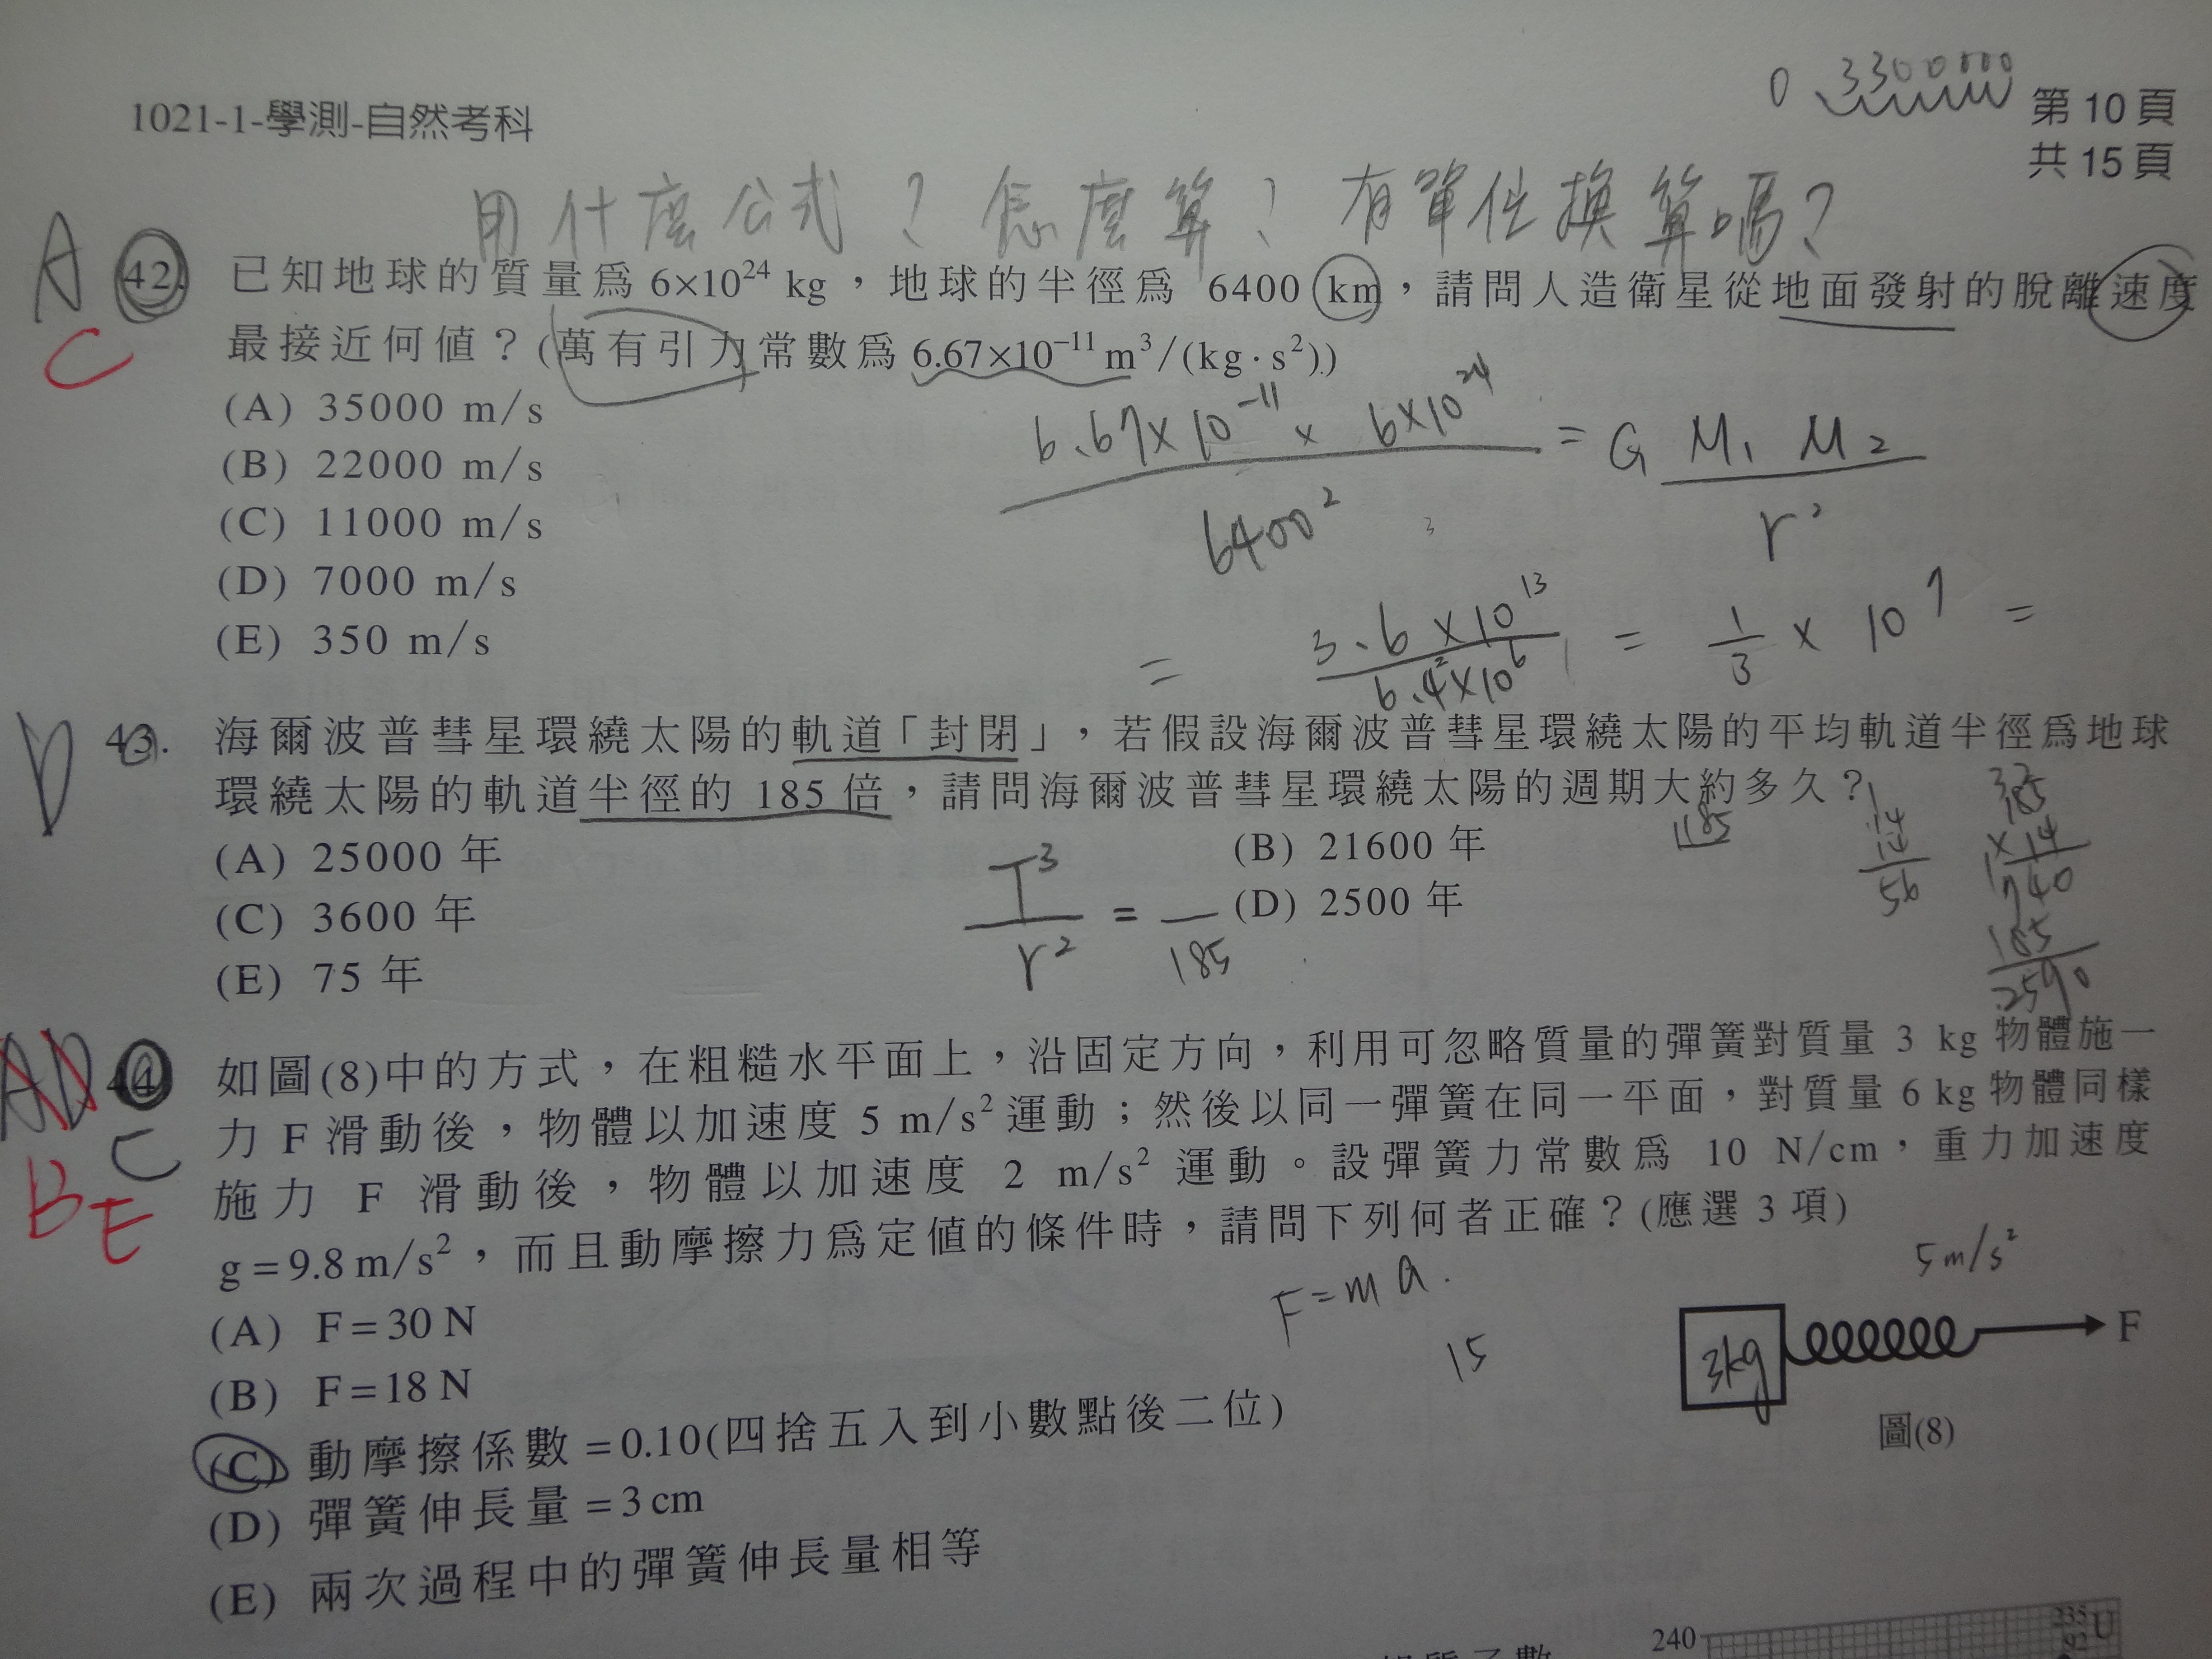 0.3300000
1021-1-學測-自然考科
第 10 頁
共 15 頁
用什麼公式？怎麼算？有單位換算嗎？
A
C
42. 已知地球的質量爲 6×10²⁴ kg，地球的半徑爲 6400 km，請問人造衛星從地面發射的脫離速度
最接近何值？(萬有引力常數爲 6.67×10⁻¹¹ m³/(kg·s²))
(A) 35000 m/s
(B) 22000 m/s
(C) 11000 m/s
(D) 7000 m/s
(E) 350 m/s
6.67×10⁻¹¹ × 6×10²⁴ = G M₁ M₂
6400² r²
= 3.6×10¹³ = 1 × 10⁷ =
6.4²×10⁶ 3
D
43. 海爾波普彗星環繞太陽的軌道「封閉」，若假設海爾波普彗星環繞太陽的平均軌道半徑爲地球
環繞太陽的軌道半徑的 185 倍，請問海爾波普彗星環繞太陽的週期大約多久？
(A) 25000 年
(B) 21600 年
(C) 3600 年
(D) 2500 年
(E) 75 年
T³
r² = 185
185
14
14
56
185
×14
740
185
2590
AD
C
BE
44. 如圖(8)中的方式，在粗糙水平面上，沿固定方向，利用可忽略質量的彈簧對質量 3 kg 物體施一
力 F 滑動後，物體以加速度 5 m/s² 運動；然後以同一彈簧在同一平面，對質量 6 kg 物體同樣
施力 F 滑動後，物體以加速度 2 m/s² 運動。設彈簧力常數爲 10 N/cm，重力加速度
g=9.8 m/s²，而且動摩擦力爲定值的條件時，請問下列何者正確？(應選 3 項)
(A) F=30 N
(B) F=18 N
(C) 動摩擦係數=0.10(四捨五入到小數點後二位)
(D) 彈簧伸長量=3 cm
(E) 兩次過程中的彈簧伸長量相等
F=ma.
15
5m/s²
3kg
F
圖(8)
240
235
92
U